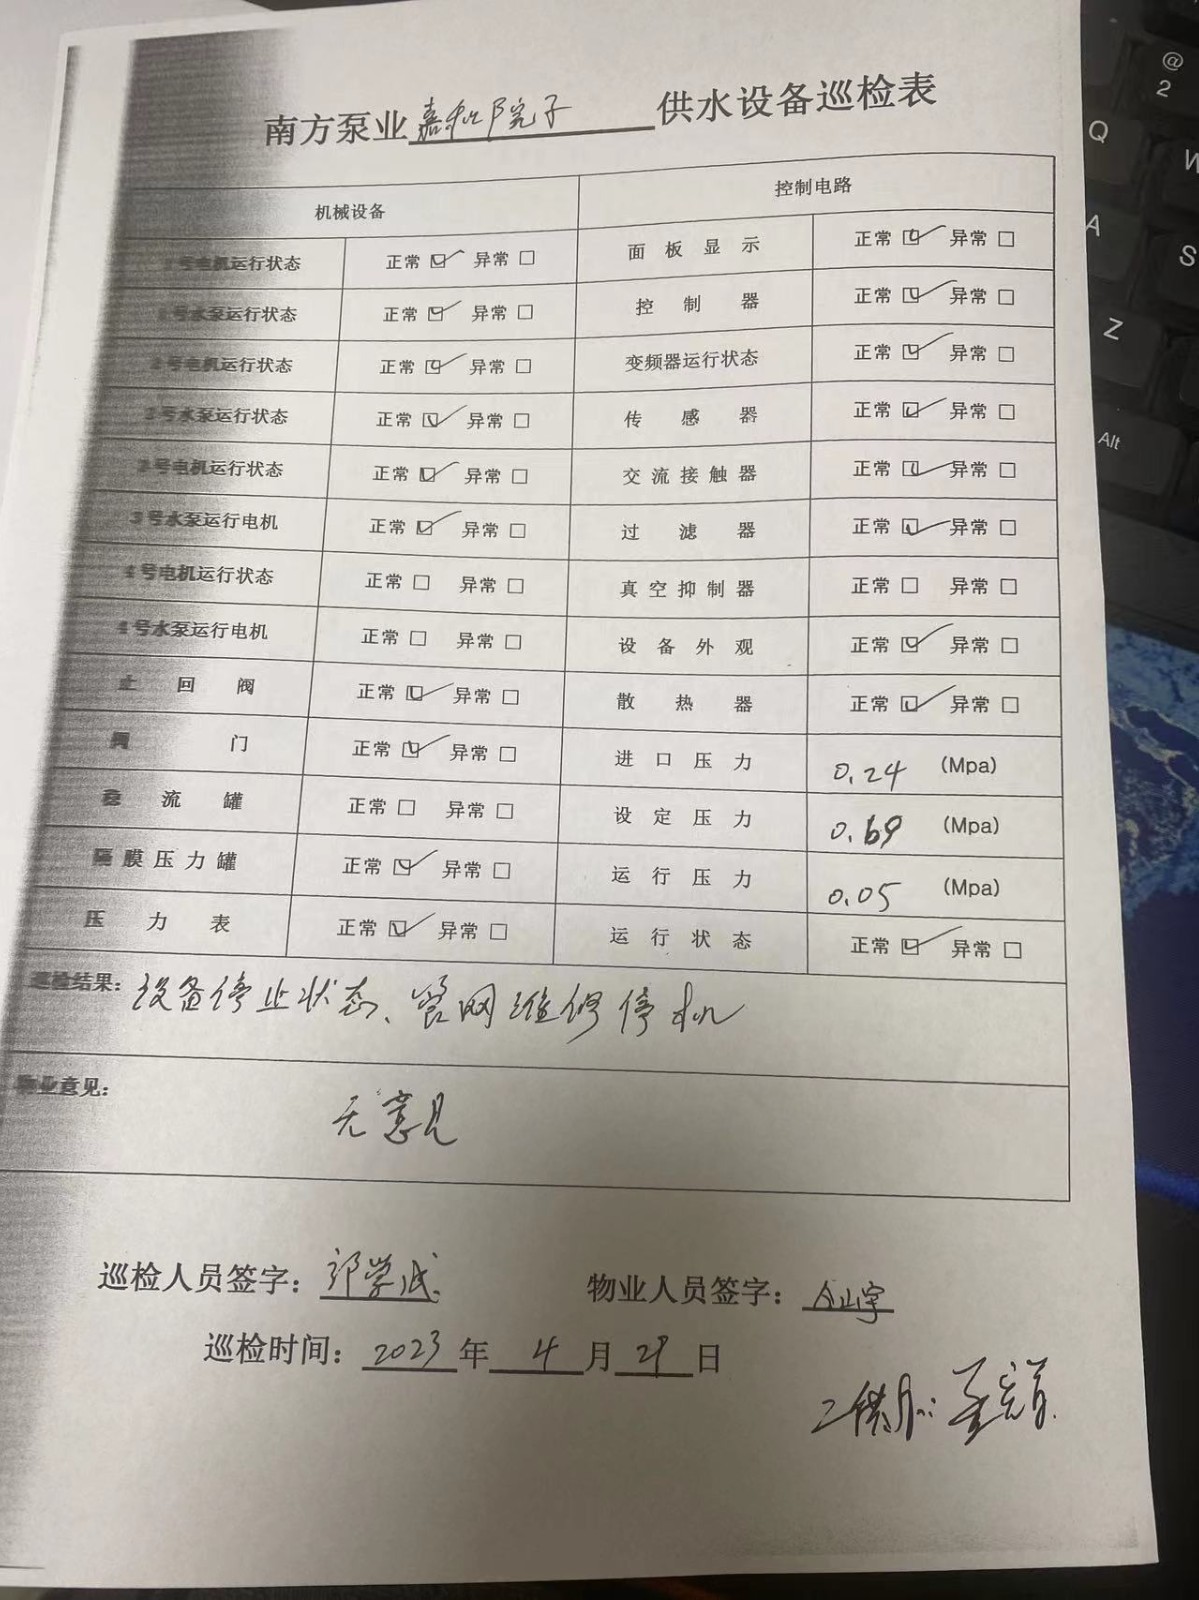 南方泵业嘉和院子供水设备巡检表
机械设备 控制电路
号电机运行状态 正常☑ 异常☐ 面板显示 正常☑ 异常☐
号水泵运行状态 正常☑ 异常☐ 控制器 正常☑ 异常☐
2号电机运行状态 正常☑ 异常☐ 变频器运行状态 正常☑ 异常☐
2号水泵运行状态 正常☑ 异常☐ 传感器 正常☑ 异常☐
3号电机运行状态 正常☑ 异常☐ 交流接触器 正常☑ 异常☐
3号水泵运行电机 正常☑ 异常☐ 过滤器 正常☑ 异常☐
4号电机运行状态 正常☐ 异常☐ 真空抑制器 正常☐ 异常☐
4号水泵运行电机 正常☐ 异常☐ 设备外观 正常☑ 异常☐
止回阀 正常☑ 异常☐ 散热器 正常☑ 异常☐
阀门 正常☑ 异常☐ 进口压力 0.24 (Mpa)
流罐 正常☐ 异常☐ 设定压力 0.69 (Mpa)
隔膜压力罐 正常☑ 异常☐ 运行压力 0.05 (Mpa)
压力表 正常☑ 异常☐ 运行状态 正常☑ 异常☐
巡检结果: 设备停止状态、管网维修停机
物业意见:
无意见
巡检人员签字: 物业人员签字:
巡检时间: 2023年 4月29日